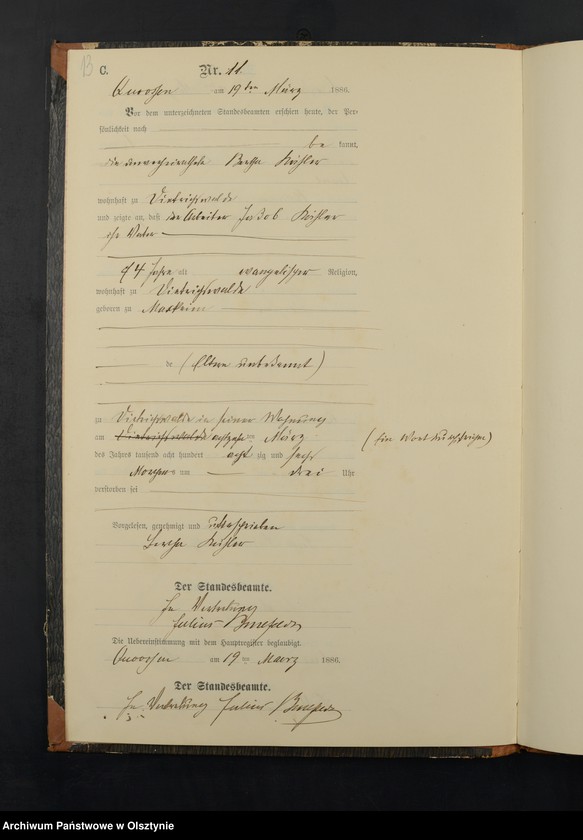 13
C.
Nr. 11.
am 19ten März 1886.
Vor dem unterzeichneten Standesbeamten erschien heute, der Per-
sönlichkeit nach
be kannt,
die Bertha Köhler
wohnhaft zu Dietrichswalde
und zeigte an, daß der Arbeiter Jakob Köhler
ihr Vater
74 Jahre alt evangelischer Religion,
wohnhaft zu Dietrichswalde
geboren zu
de (Eltern unbekannt)
zu Dietrichswalde in seiner Wohnung
am Dietrichswalde achtzehnten März (Ein Wort durchstrichen)
des Jahres tausend acht hundert achtzig und sechs
Morgens um drei Uhr
verstorben sei
Vorgelesen, genehmigt und unterschrieben
Bertha Köhler
Der Standesbeamte.
In Vertretung
Julius
Die Uebereinstimmung mit dem Hauptregister beglaubigt.
am 19ten Maerz 1886.
Der Standesbeamte.
In Vertretung Julius
Archiwum Państwowe w Olsztynie